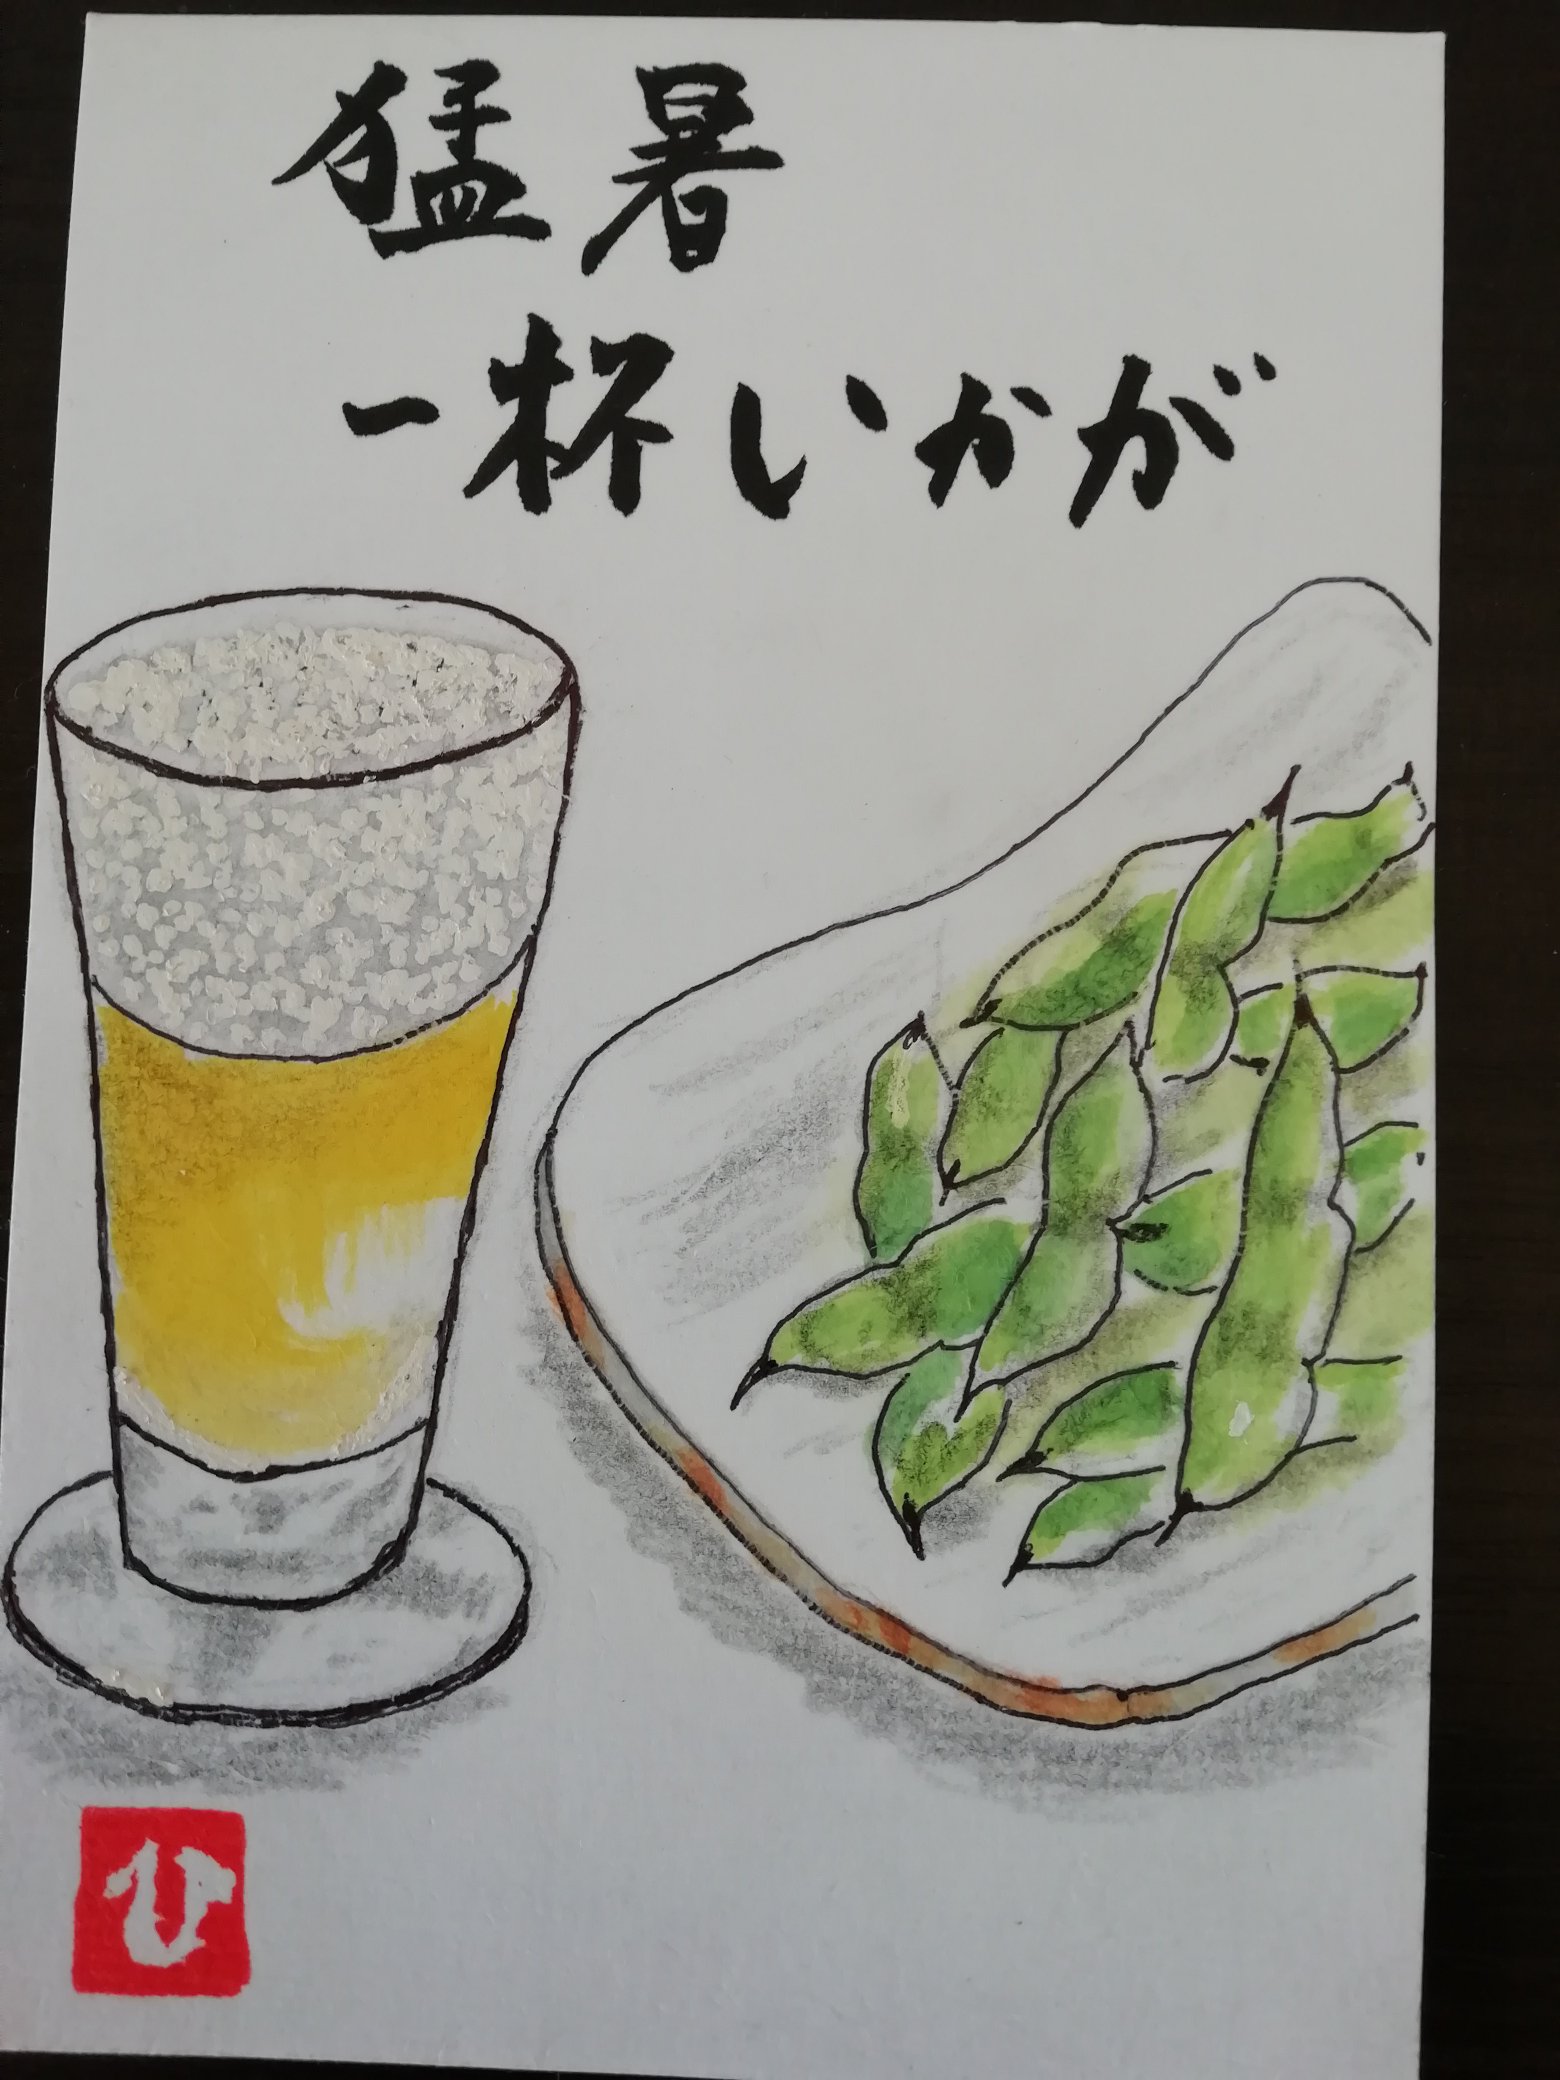 猛暑
一杯いかが
ひ